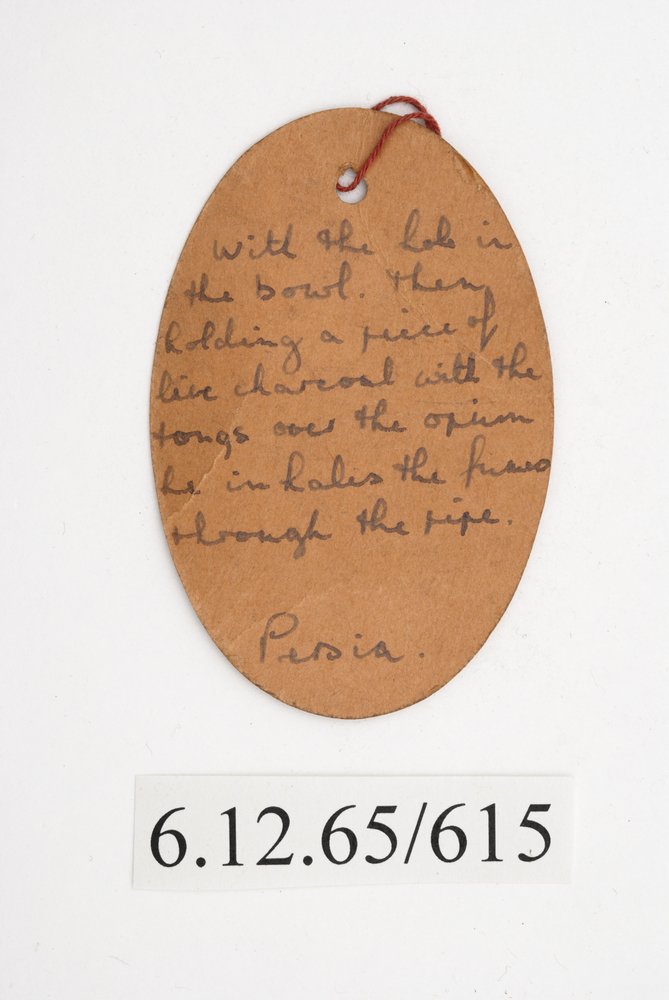 with the hole in
the bowl. Then
holding a piece of
live charcoal with the
tongs over the opium
he inhales the fumes
through the pipe.
Persia.
6.12.65/615